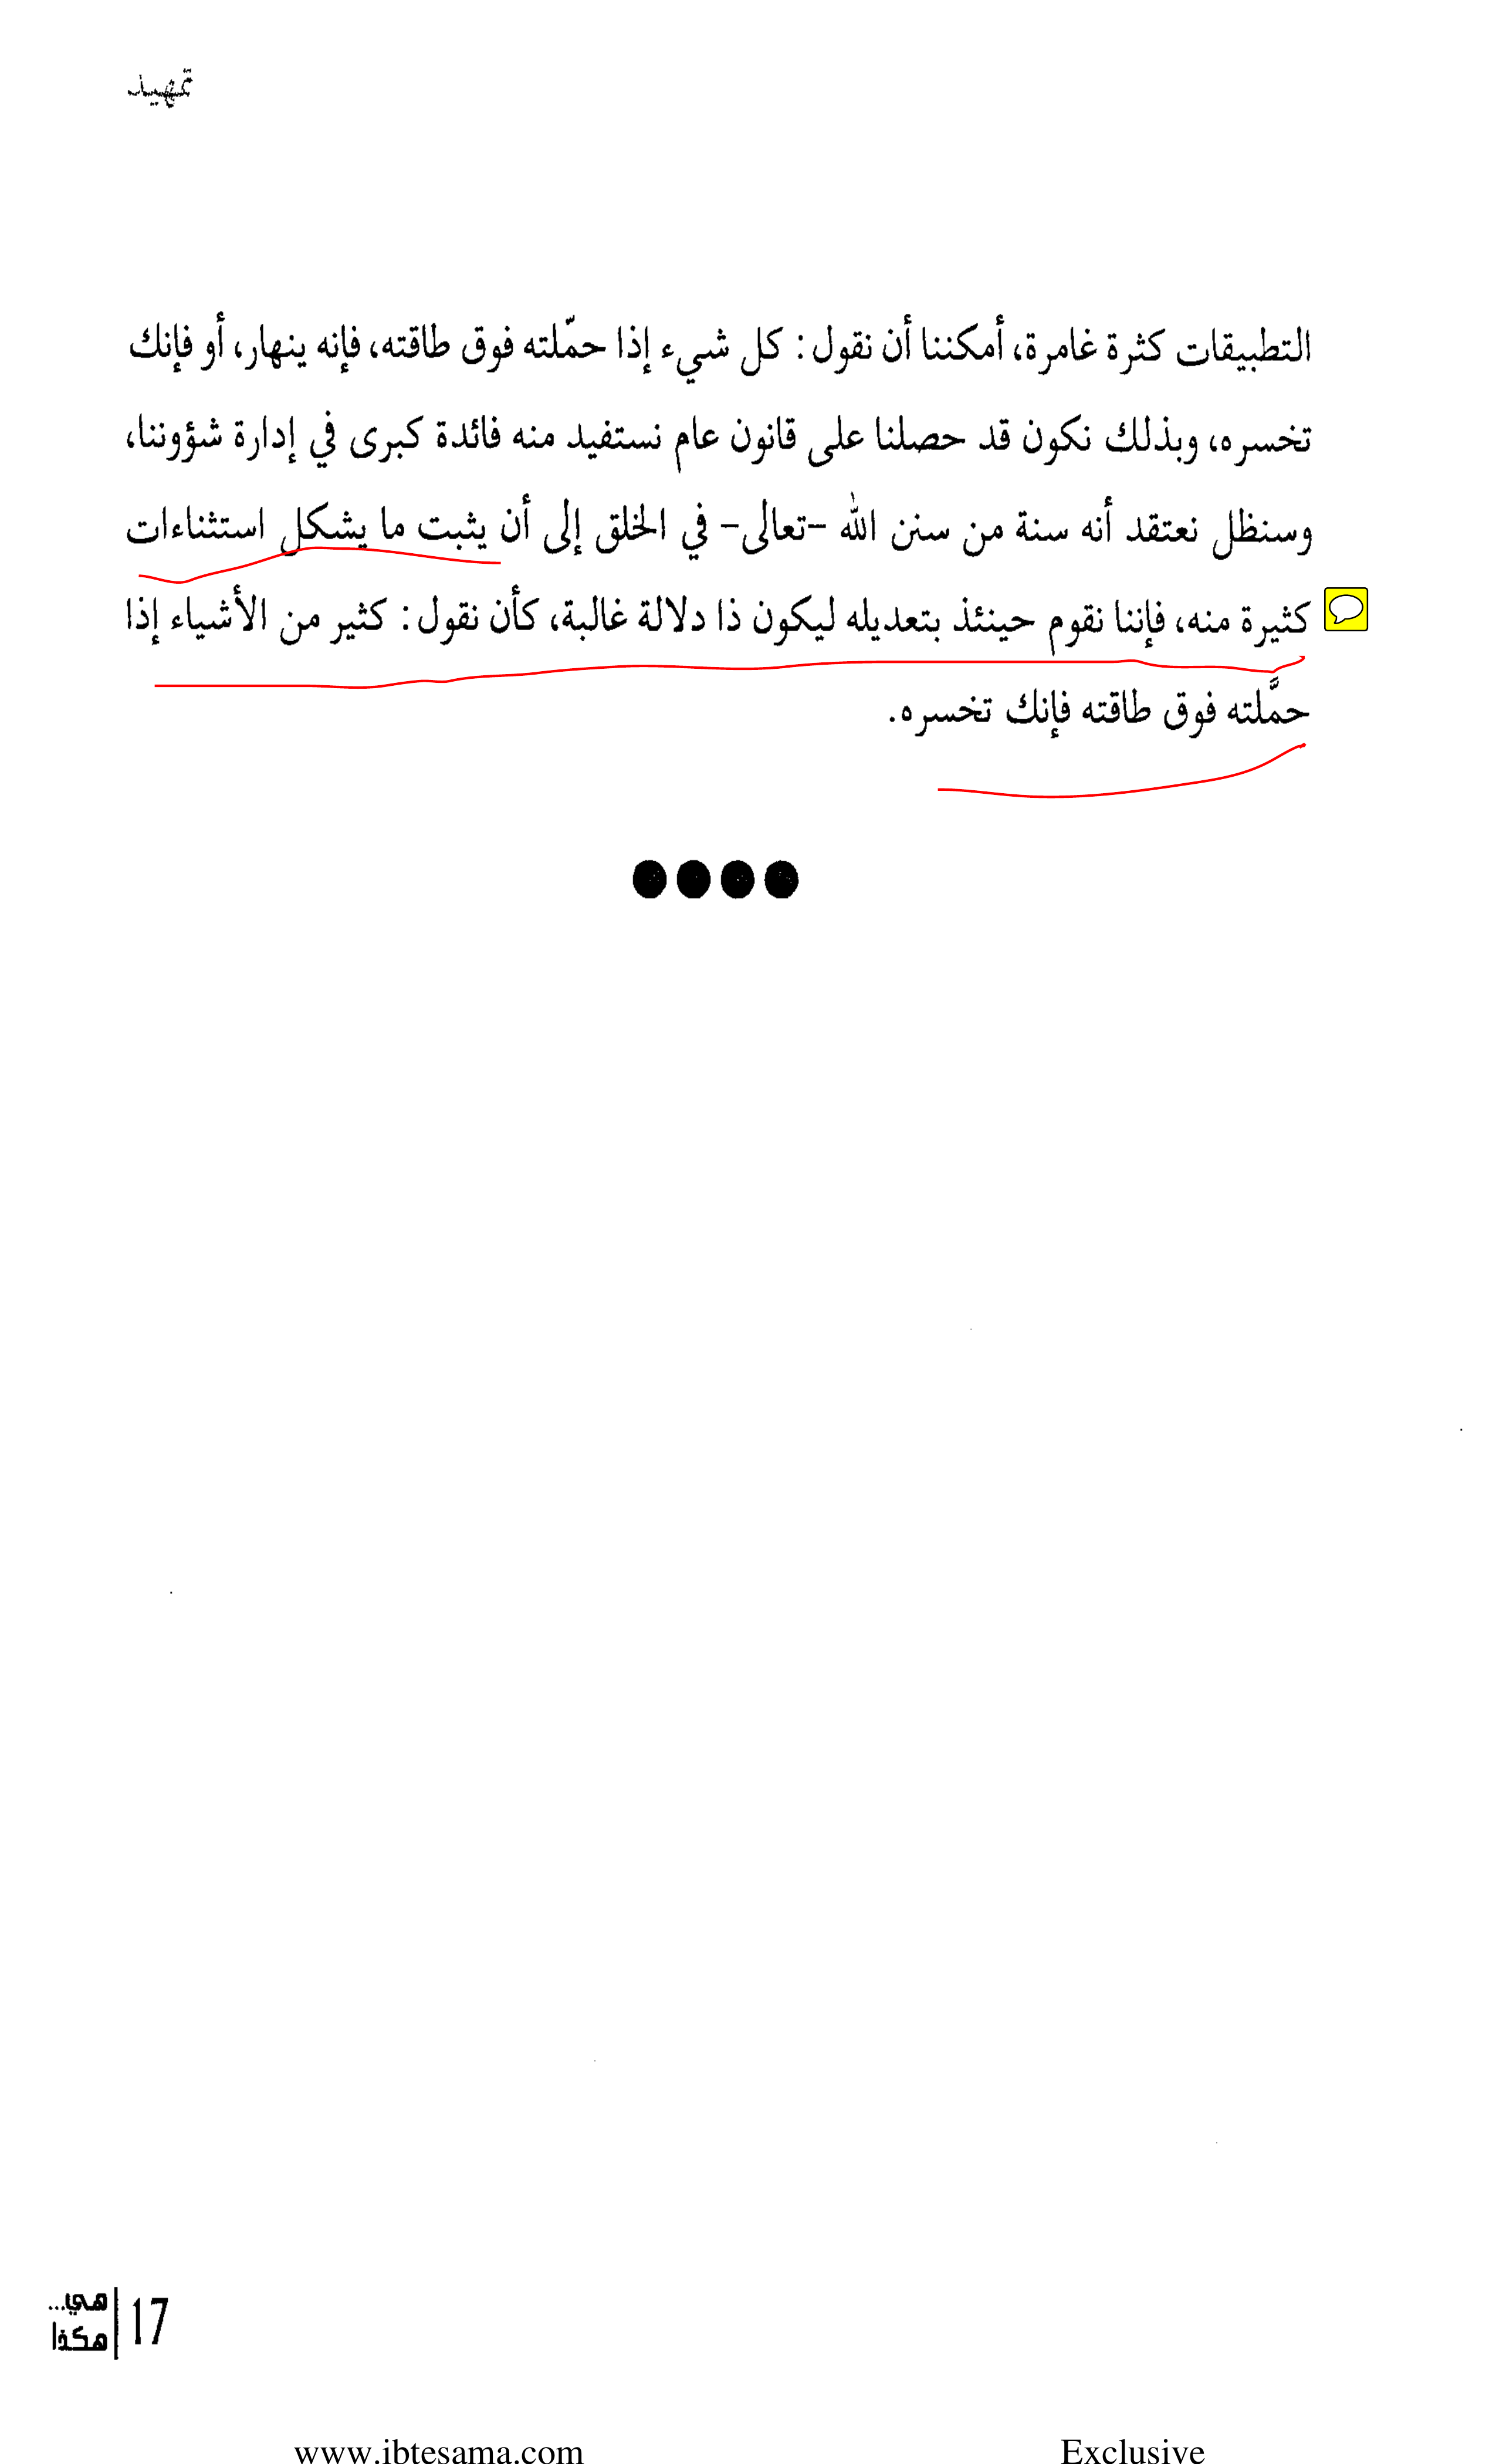 تمهيد
التطبيقات كثرة غامرة، أمكننا أن نقول: كل شيء إذا حمّلته فوق طاقته، فإنه ينهار، أو فإنك
تخسره، وبذلك نكون قد حصلنا على قانون عام نستفيد منه فائدة كبرى في إدارة شؤوننا،
وسنظل نعتقد أنه سنة من سنن الله -تعالى- في الخلق إلى أن يثبت ما يشكل استثناءات
كثيرة منه، فإننا نقوم حينئذ بتعديله ليكون ذا دلالة غالبة، كأن نقول: كثير من الأشياء إذا
حمَّلته فوق طاقته فإنك تخسره.
17
هي...
هكذا
www.ibtesama.com Exclusive